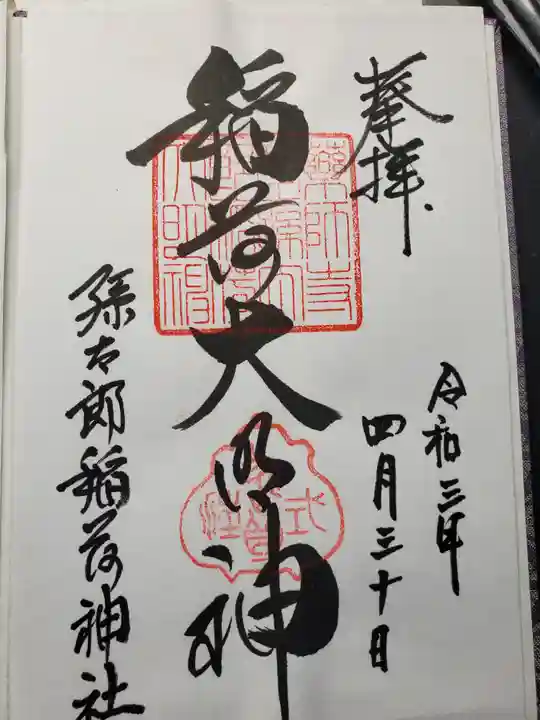 奉拝
令和三年
四月三十日
稲荷大明神
孫太郎稲荷神社
薬師寺